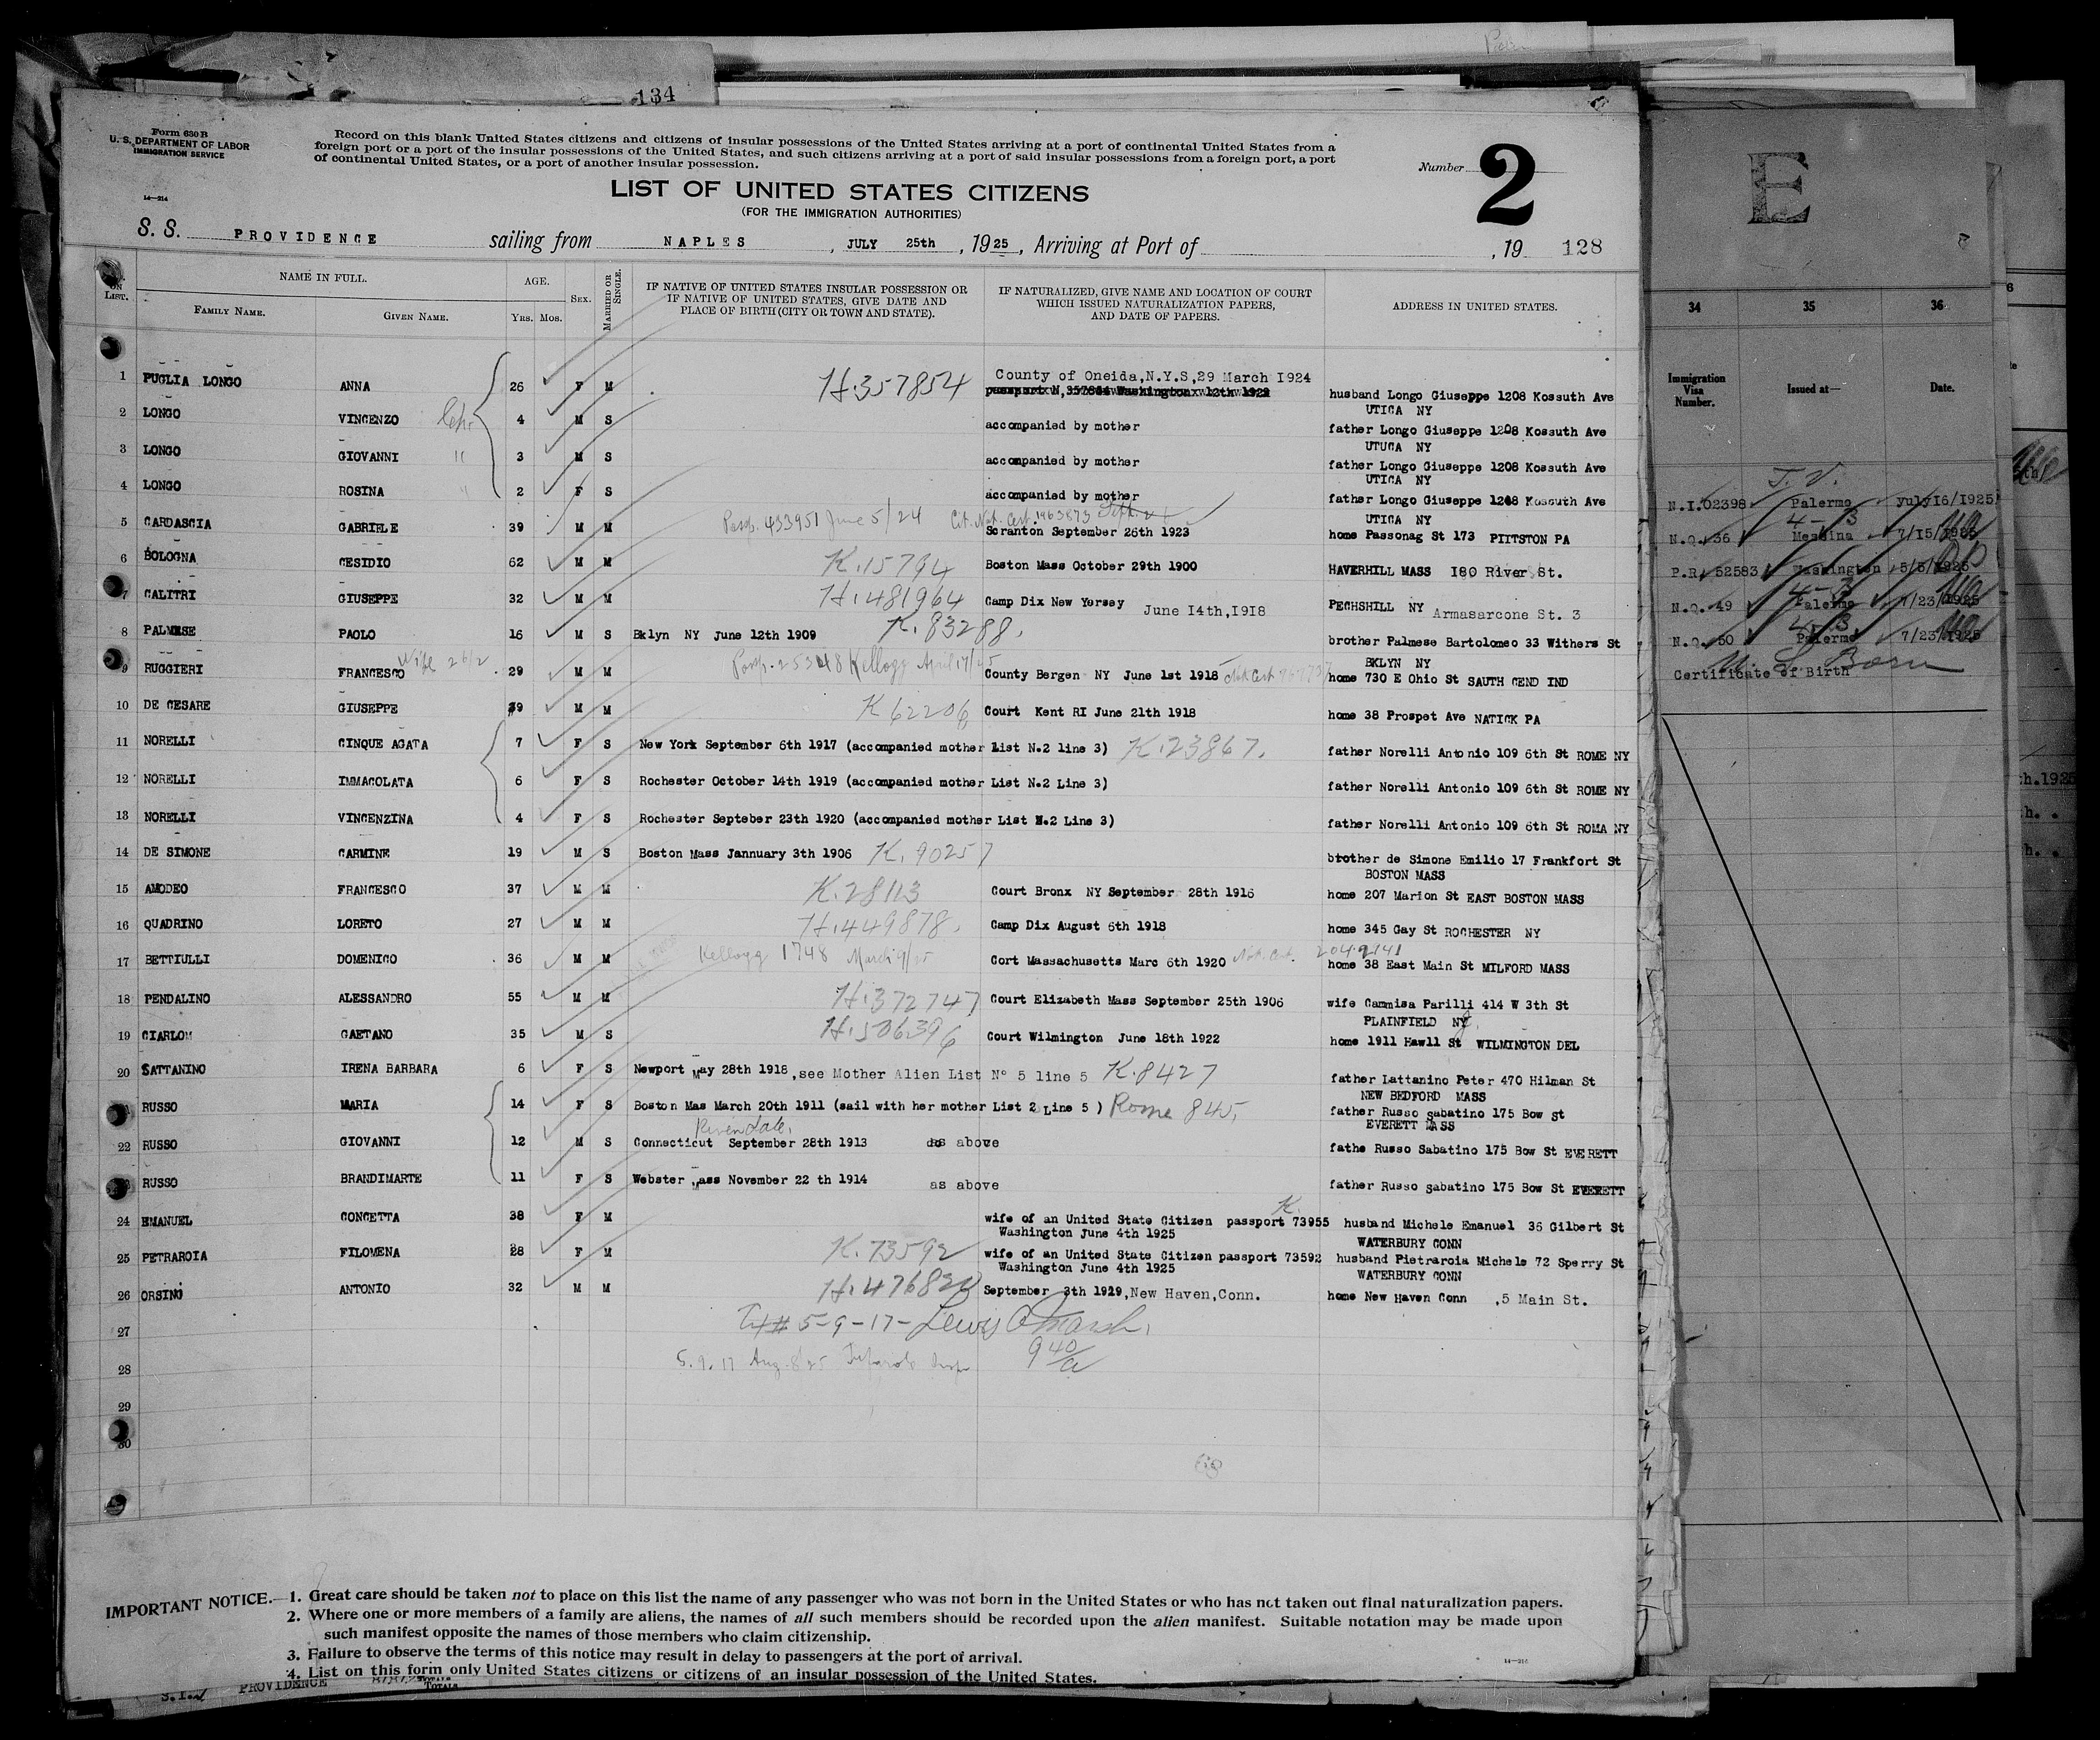 134
Form 630 B
U. S. DEPARTMENT OF LABOR
IMMIGRATION SERVICE
14—214
Record on this blank United States citizens and citizens of insular possessions of the United States arriving at a port of continental United States from a
foreign port or a port of the insular possessions of the United States, and such citizens arriving at a port of said insular possessions from a foreign port, a port
of continental United States, or a port of another insular possession.
Number 2
LIST OF UNITED STATES CITIZENS
(FOR THE IMMIGRATION AUTHORITIES)
S. S. PROVIDENCE sailing from NAPLES, JULY 25th, 1925, Arriving at Port of , 19 128
ON LIST. NAME IN FULL. AGE. SEX. MARRIED OR SINGLE. IF NATIVE OF UNITED STATES INSULAR POSSESSION OR IF NATIVE OF UNITED STATES, GIVE DATE AND PLACE OF BIRTH (CITY OR TOWN AND STATE). IF NATURALIZED, GIVE NAME AND LOCATION OF COURT WHICH ISSUED NATURALIZATION PAPERS, AND DATE OF PAPERS. ADDRESS IN UNITED STATES.
FAMILY NAME. GIVEN NAME. YRS. MOS.
1 PUGLIA LONGO ANNA 26 F M H.357854 County of Oneida,N.Y.S,29 March I924 husband Longo Giuseppe 1208 Kossuth Ave
UTICA NY
2 LONGO VINCENZO 4 M S accompanied by mother father Longo Giuseppe 1208 Kossuth Ave
UTUCA NY
3 LONGO GIOVANNI " 3 M S accompanied by mother father Longo Giuseppe 1208 Kossuth Ave
UTICA NY
4 LONGO ROSINA " 2 F S accompanied by mother father Longo Giuseppe 1208 Kossuth Ave
UTICA NY
5 CARDASCIA GABRIELE 39 M M Passp. 433951 June 5/24 Cit. Nat. Cert. 1963873 Sept. 26
Scranton September 26th 1923 home Passonag St 173 PIITSTON PA
6 BOLOGNA CESIDIO 62 M M K.15794 Boston Mass October 29th 1900 HAVERHILL MASS I80 River St.
7 CALITRI GIUSEPPE 32 M M H.481964 Camp Dix New Yersey June I4th,I9I8 PECHSHILL NY Armasarcone St. 3
8 PALMESE PAOLO 16 M S Bklyn NY June 12th 1909 K.83288. brother Palmese Bartolomeo 33 Withers St
BKLYN NY
9 RUGGIERI FRANCESCO Wife 26/2 29 M M Passp. 25348 Kellogg April 17/25 County Bergen NY June 1st 1918 Nat Cert home 730 E Ohio St SAUTH CEND IND
10 DE CESARE GIUSEPPE 39 M M K 62206 Court Kent RI June 21th 1918 home 38 Prospet Ave NATICK PA
11 NORELLI CINQUE AGATA 7 F S New York September 6th 1917 (accompanied mother List N.2 line 3) K.23867. father Norelli Antonio 109 6th St ROME NY
12 NORELLI IMMACOLATA 6 F S Rochester October 14th 1919 (accompanied mother List N.2 Line 3) father Norelli Antonio 109 6th St ROME NY
13 NORELLI VINCENZINA 4 F S Rochester Septeber 23th 1920 (accompanied mother List N.2 Line 3) father Norelli Antonio 109 6th St ROMA NY
14 DE SIMONE CARMINE 19 M S Boston Mass Jannuary 3th 1906 K. 90257 brother de Simone Emilio 17 Frankfort St
BOSTON MASS
15 AMODEO FRANCESCO 37 M M K.28113 Court Bronx NY September 28th 1916 home 207 Marion St EAST BOSTON MASS
16 QUADRINO LORETO 27 M M H.449878. Camp Dix August 6th 1918 home 345 Gay St ROCHESTER NY
17 BETTIULLI DOMENICO 36 M M Kellogg 1748 March 9/25 Cort Massachusetts Marc 6th 1920 Nat. Cert. 2042141 home 38 East Main St MILFORD MASS
18 PENDALINO ALESSANDRO 55 M M H.372747 Court Elizabeth Mass September 25th 1906 wife Cammisa Parilli 414 W 3th St
PLAINFIELD NJ
19 CIARLOM GAETANO 35 M S H.506396 Court Wilmington June 18th 1922 home 1911 Hawll St WILMINGTON DEL
20 SATTANINO IRENA BARBARA 6 F S Newport May 28th 1918,see Mother Alien List Nº 5 line 5 K.8427 father Lattanino Peter 470 Hilman St
NEW BEDFORD MASS
RUSSO MARIA 14 F S Boston Mas March 20th 1911 (sail with her mother List 2 Line 5 ) Rome 845, father Russo Sabatino 175 Bow St
EVERETT MASS
Riverdale,
22 RUSSO GIOVANNI 12 M S Connecticut September 28th 1913 as above fathe Russo Sabatino 175 Bow St EVERETT
RUSSO BRANDIMARTE 11 F S Webster Mass November 22 th 1914 as above father Russo Sabatino 175 Bow St EVERETT
24 EMANUEL CONCETTA 38 F M wife of an United State Citizen passport K. 73955 husband Michele Emanuel 36 Gilbert St
Washington June 4th 1925 WATERBURY CONN
25 PETRAROIA FILOMENA 28 F M K.73592 wife of an United State Citizen passport 73592 husband Pietraroia Michele 72 Sperry St
Washington June 4th 1925 WATERBURY CONN
26 ORSINO ANTONIO 32 M M H.476820 September 3th 1919,New Haven,Conn. home New Haven Conn ,5 Main St.
27 5-9-17- Lewis
28 5.9.17 Aug. 8/25 940/a
29
30
IMPORTANT NOTICE.—1. Great care should be taken not to place on this list the name of any passenger who was not born in the United States or who has not taken out final naturalization papers.
2. Where one or more members of a family are aliens, the names of all such members should be recorded upon the alien manifest. Suitable notation may be made upon
such manifest opposite the names of those members who claim citizenship.
3. Failure to observe the terms of this notice may result in delay to passengers at the port of arrival.
4. List on this form only United States citizens or citizens of an insular possession of the United States.
14—214
PROVIDENCE
TOTALS
E
34 35 36
Immigration Visa Number. Issued at— Date.
N.I.02398 Palermo yuly16/1925
N.Q. 36 Messina 7/15/1925
P.R. 52583 Washington 5/5/1925
N.Q. 49 Palermo 7/23/1925
N.Q. 50 Palermo 7/23/1925
U. S. Born
Certificate of Birth